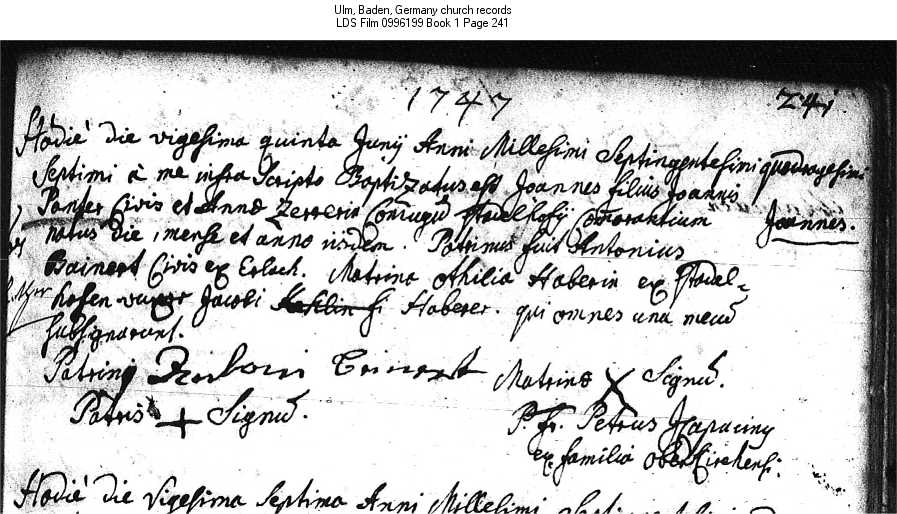 Ulm, Baden, Germany church records
LDS Film 0996199 Book 1 Page 241
1747 241
Hodie die vigesima quinta Junij Anni Millesimi Septingentesimi quadragesimi
Septimi à me infra Scripto Baptizatus est Joannes filius Joannis
Panter Civis et Annæ Zererin Conjugum Stadelhofij Commorantium Joannes.
natus die, mense et anno iisdem. Patrinus fuit Antonius
Bainert Civis ex Erlach. Matrina Othilia Haberin ex Stadel-
hofen Jacobi Haberer. qui omnes una mecum
subsignarunt.
Patrini Matrinæ X Signum.
Patris + Signum. P. Fr. Petrus Capucinus
ex familia oberKirchensi.
Hodie die Vigesima Septima Anni Millesimi